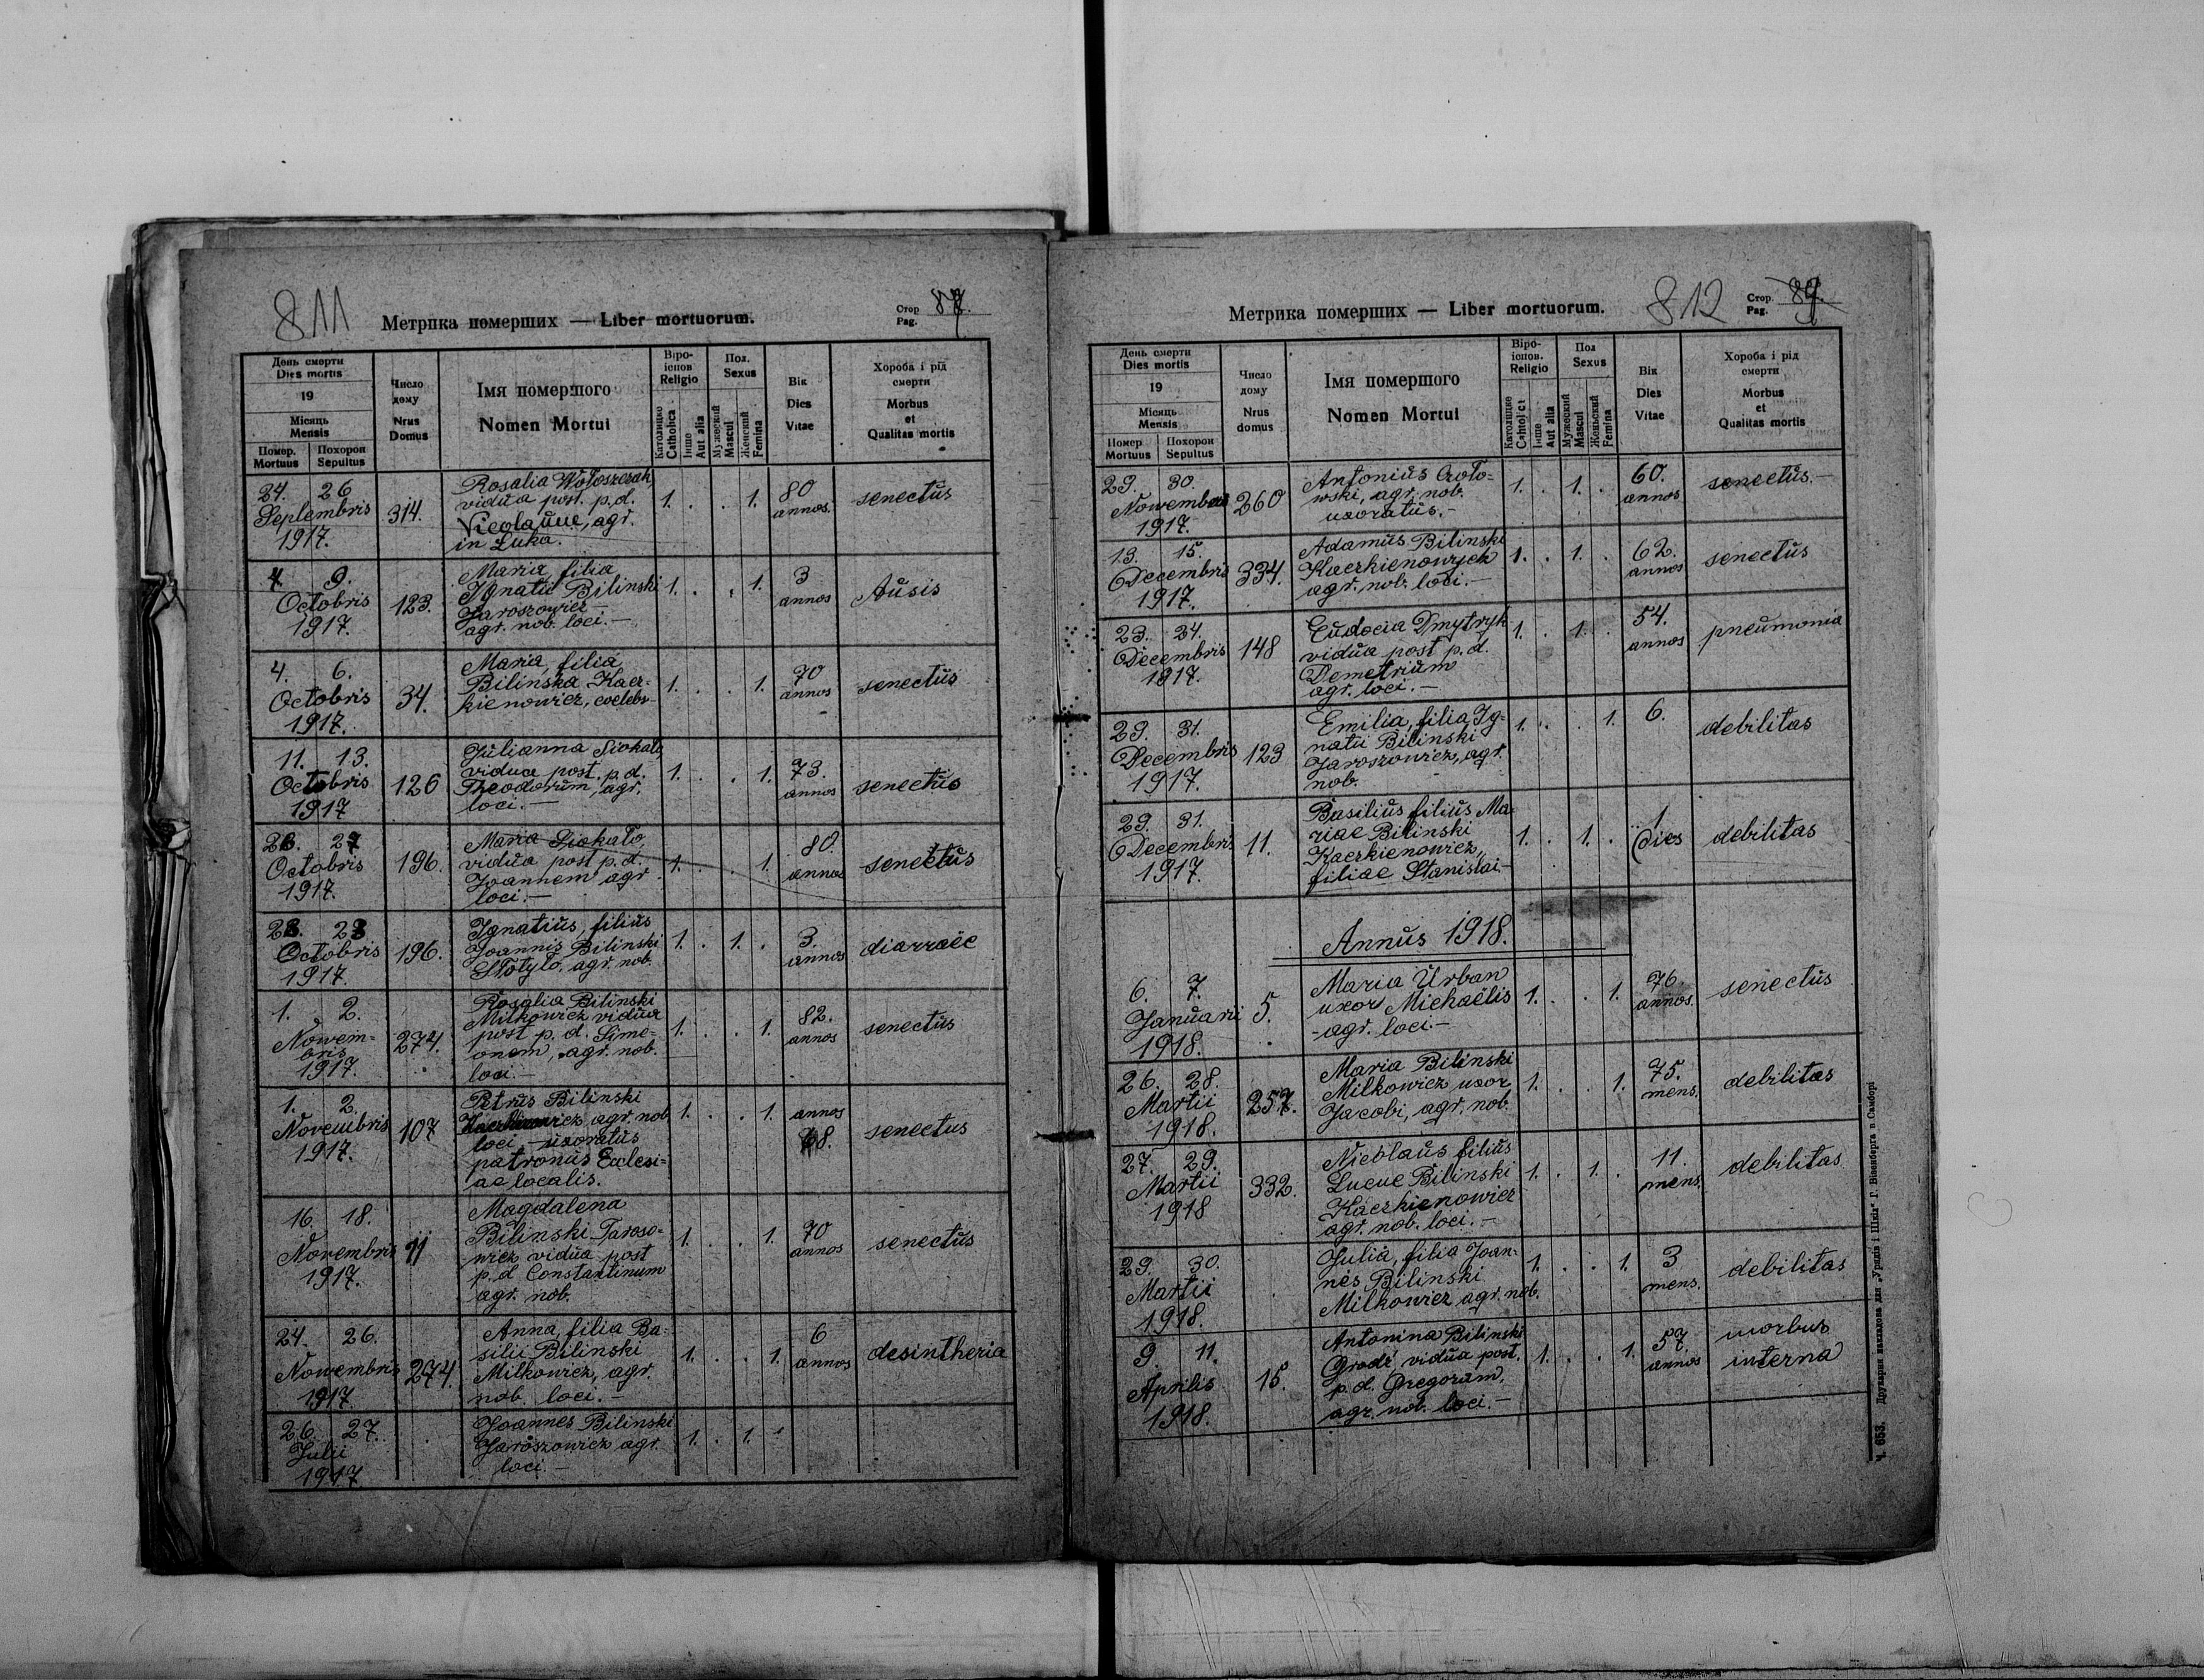 811
Метрика померших — Liber mortuorum.
Стор
Pag. 87.
День смерти
Dies mortis
19
Місяць
Mensis
Помер.
Mortuus
Похорон
Sepultus
Число
дому
Nrus
Domus
Імя помершого
Nomen Mortui
Віро-
іспов
Religio
Католицке
Catholica
Інше
Aut alia
Пол.
Sexus
Мужеский
Mascul
Женский
Femina
Вік
Dies
Vitae
Хороба і рід
смерти
Morbus
et
Qualitas mortis
24. 26
Septembris
1917.
314.
Rosalia Wołoszczak
vidua post. p. d.
Nicolaum, agr.
in Luka.
1. . . 1.
80
annos.
senectus
4 9.
Octobris
1917.
123.
Maria, filia
Ignatii Bilinski
Jaroszowicz –
agr. nob. loci. –
1. . . 1.
3
annos
tusis
4. 6.
Octobris
1917.
34.
Maria, filia
Bilinska Kacz-
kienowicz, coelebs
1. . . 1.
70
annos
senectus
11. 13.
Octobris
1917
126
Julianna Siokało,
vidua post. p. d.
Theodorum, agr.
loci. –
1. . . 1.
73.
annos
senectus
27
Octobris
1917.
196.
Maria Siokało,
vidua post p. d.
Joannem agr
loci. –
1. . . 1.
80.
annos
senectus
Octobris
1917.
196.
Ignatius, filius
Joannis Bilinski
Słotyło, agr. nob.
1. . 1. .
3.
annos
diarroëe
1. 2.
Nowem-
bris
1917.
274.
Rosalia Bilinski
Milkowicz vidua
post p. d. Sime-
onem, agr. nob.
loci. –
1. . . 1.
82.
annos
senectus
1. 2.
Novembris
1917.
107
Petrus Bilinski
agr. nob.
loci, – uxoratus
patronus Ecclesi-
ae localis.
1. . . 1.
annos
68.
senectus
16. 18.
Novembris
1917.
11
Magdalena
Bilinski Taroso-
wicz vidua post
p. d Constantinum
agr. nob.
1. . . 1.
70
annos
senectus
24. 26.
Nowembris
1917.
274.
Anna, filia Ba-
silii Bilinski
Milkowicz, agr.
nob. loci. –
1. . . 1.
6
annos
desintheria
26. 27.
Julii
1917
Joannes Bilinski
Jaroszowicz agr.
loci. –
1. . 1.
812
Метрика померших — Liber mortuorum.
Стор.
Pag. 89.
День смерти
Dies mortis
19
Місяць
Mensis
Помер
Mortuus
Похорон
Sepultus
Число
дому
Nrus
domus
Імя помершого
Nomen Mortui
Віро-
іспов.
Religio
Католицке
Cahtol ct
Інше
Aut alia
Пол
Sexus
Мужеский
Mascul
Женьский
Femina
Вік
Dies
Vitae
Хороба і рід
смерти
Morbus
et
Qualitas mortis
29. 30.
Nowembris
1917.
260
Antonius
wski, agr. nob.
uxoratus. –
1. . 1. .
60.
annos
senectus. –
13. 15.
Decembris
1917.
334.
Adamus Bilinski
Kaczkienowycz
agr. nob. loci. –
1. . 1. .
62.
annos
senectus
23. 24.
Decembris
1917.
148
Eudocia Dmytryk
vidua post p. d.
Demetrium
agr. loci. –
1. . 1. .
54.
annos
pneumonia
29. 31.
Decembris
1917.
123
Emilia, filia Ig-
natii Bilinski
Jaroszowicz, agr.
nob.
1. . . 1.
6.
debilitas
29. 31.
Decembris
1917.
11.
Basilius filius Ma-
riae Bilinski
Kaczkienowicz,
filiae Stanislai
1. . 1. .
1
dies
debilitas
Annus 1918.
6. 7.
Januarii
1918.
5.
Maria Urban
uxor Michaëlis
- agr. loci. –
1. . . 1.
76.
annos.
senectus
26. 28.
Martii
1918.
257.
Maria Bilinski
Milkowicz uxor
Jacobi, agr. nob.
1. . . 1.
75.
mens.
debilitas
27. 29.
Martii
1918
332.
Nicolaus filius
Lucae Bilinski
Kaczkienowicz
agr. nob. loci. –
1. . 1. .
11.
mens.
debilitas
29. 30.
Martii
1918.
Julia, filia Joan-
nes Bilinski
Milkowicz agr. nob.
1. . . 1.
3
mens.
debilitas
9. 11.
Aprilis
1918.
15.
Antonina Bilinski
Grodz vidua post.
p. d. Gregoram.
agr. nob. loci. –
1. . . 1.
57.
annos
morbus
interna
Ч. 653. Друкарня накладова для „Урядів і Шкіл“ Г. Візенберга в Самборі